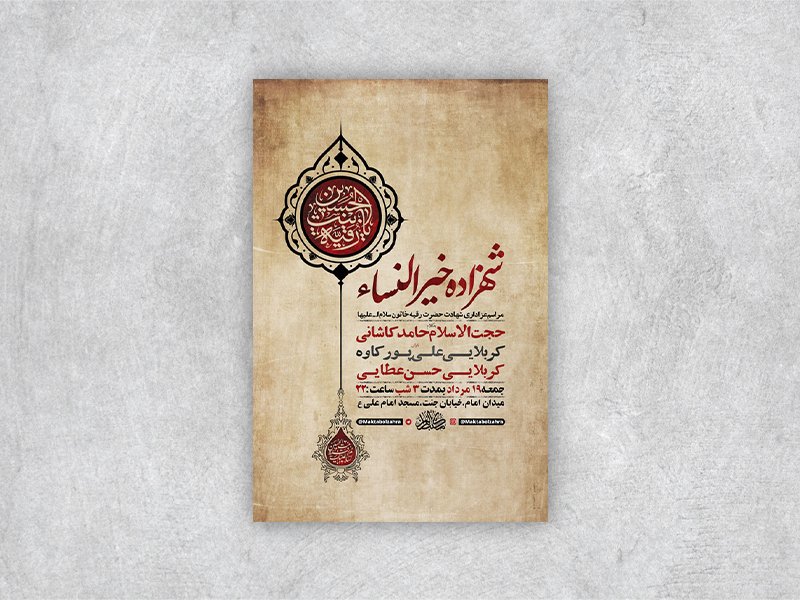 یا رقیه بنت الحسین
شهزاده خیرالنساء
مراسم عزاداری شهادت حضرت رقیه خاتون سلام الله علیها
حجت الاسلام حامد کاشانی
کربلایی علی پور کاوه
کربلایی حسن عطایی
جمعه ۱۹ مرداد بمدت ۳ شب ساعت: ۲۲
میدان امام، خیابان جنت، مسجد امام علی ع
@Maktabolzahra @Maktabolzahra